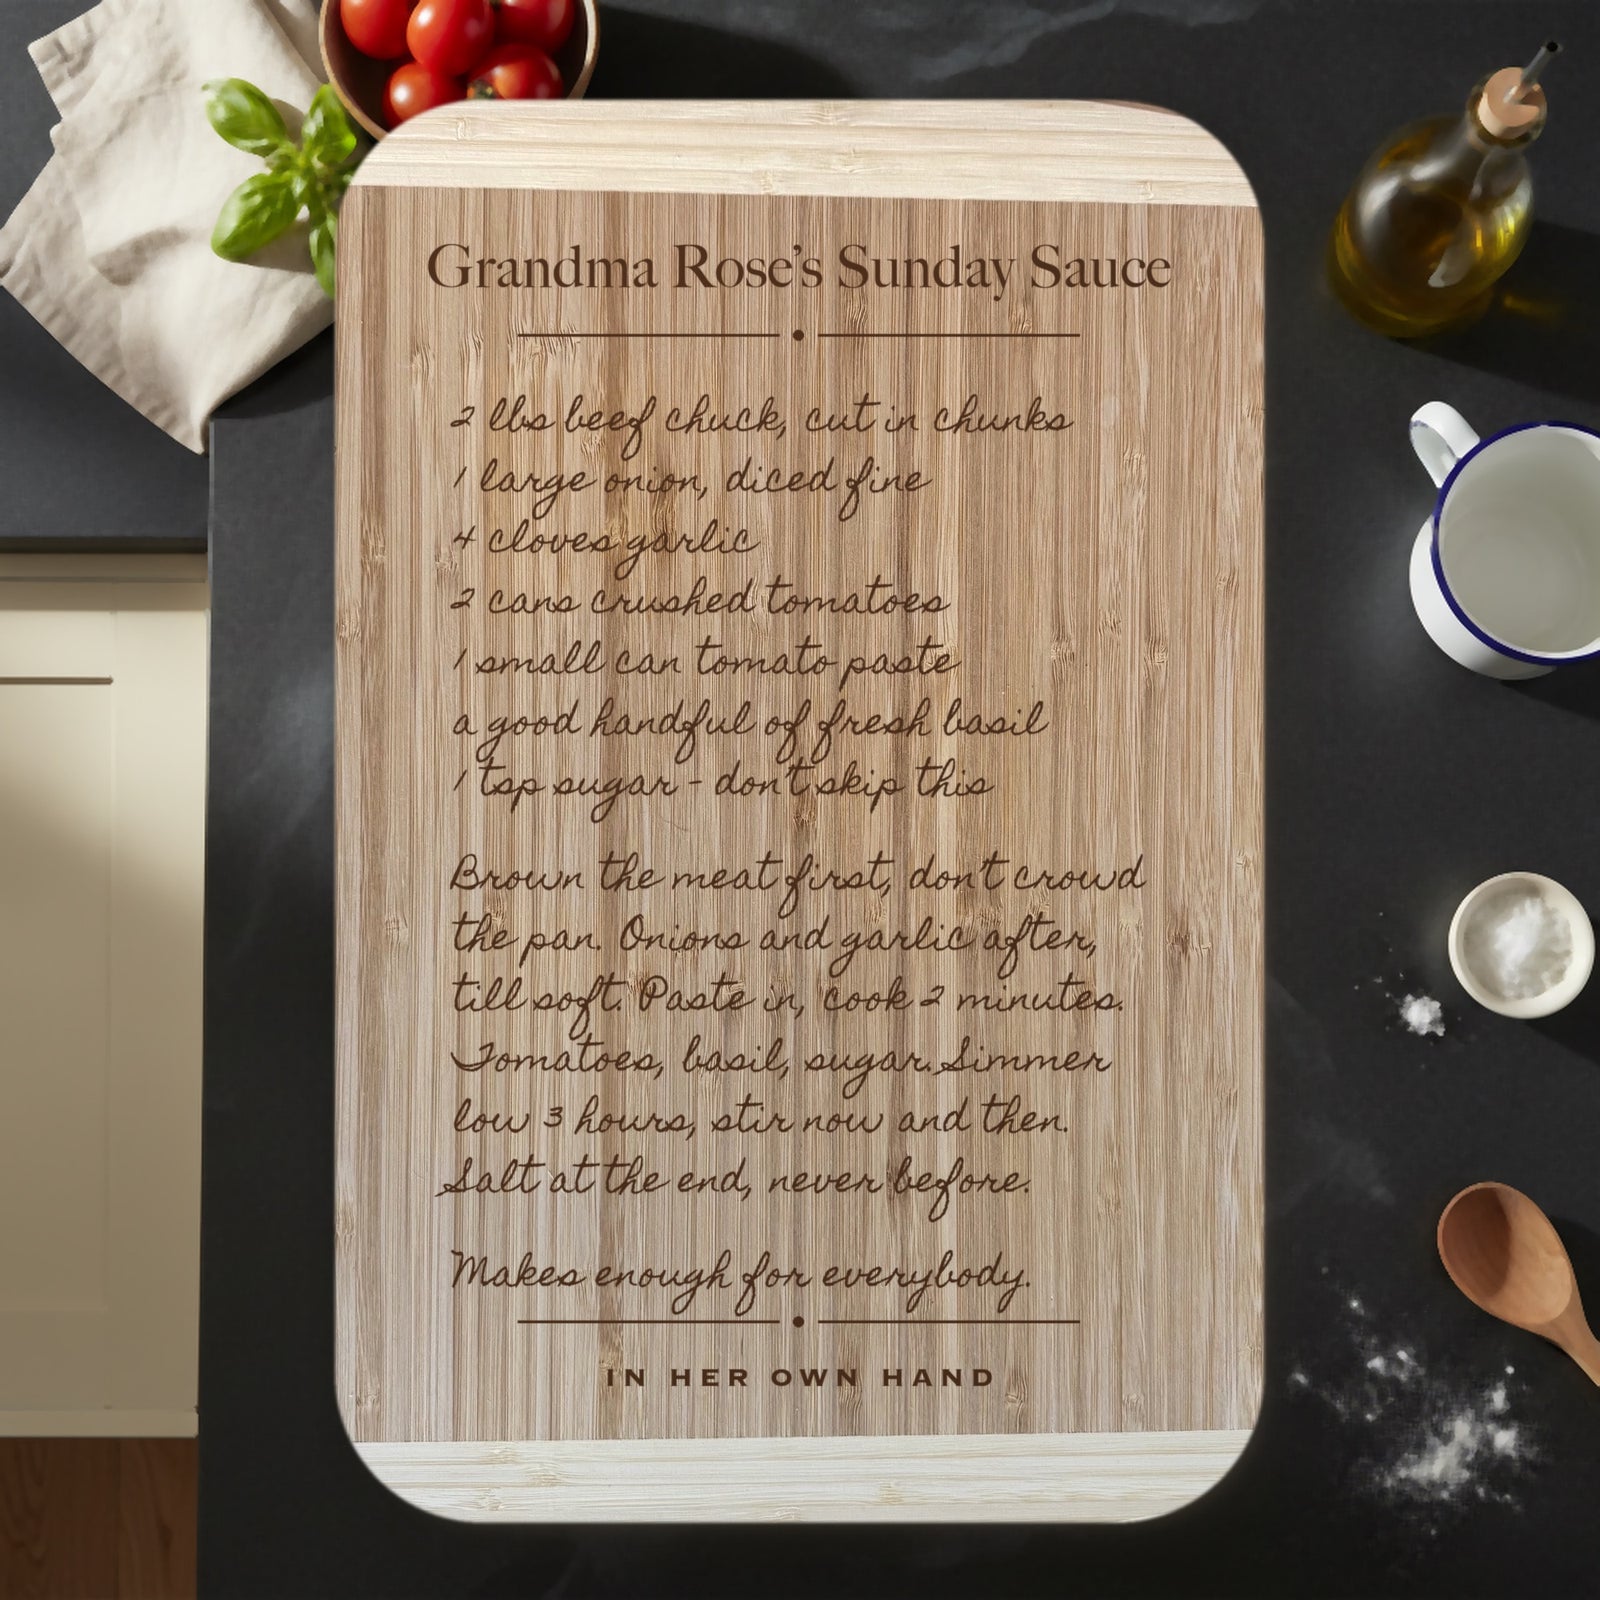 Grandma Rose's Sunday Sauce
2 lbs beef chuck, cut in chunks
1 large onion, diced fine
4 cloves garlic
2 cans crushed tomatoes
1 small can tomato paste
a good handful of fresh basil
1 tsp sugar - don't skip this
Brown the meat first, don't crowd
the pan. Onions and garlic after,
till soft. Paste in, cook 2 minutes.
Tomatoes, basil, sugar. Simmer
low 3 hours, stir now and then.
Salt at the end, never before.
Makes enough for everybody.
IN HER OWN HAND